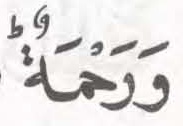 وَرَحْمَةٌ ؕ